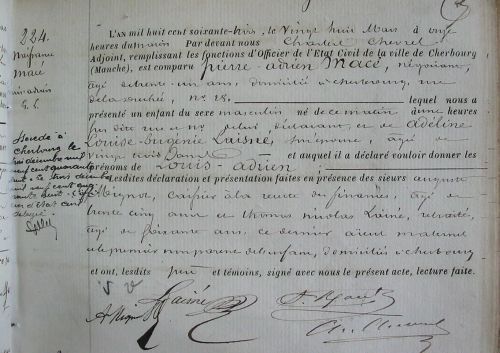 224.
Naissance
Macé
L'AN mil huit cent soixante-trois, le vingt huit Mars à onze
heures du matin Par devant nous Charles Chevrel
Adjoint, remplissant les fonctions d'Officier de l'Etat Civil de la ville de Cherbourg
(Manche), est comparu pierre-adrien Macé, négociant,
âgé de trente un ans, domicilié à cherbourg, rue
de la duché, n°. 28. lequel nous a
présenté un enfant du sexe masculin né de ce matin à une heures
de lui déclarant, et de adéline
Louise Eugénie Laisné, son épouse, âgé de
vingt trois ans et auquel il a déclaré vouloir donner les
prénoms de Louis-adrien
Lesdites déclaration et présentation faites en présence des sieurs auguste
Mignot, Caissier à la recette de finances, âgé de
trente cinq ans et thomas nicolas Laisné, retraité,
âgé de soixante ans, ce dernier aïeul maternel
et le premier non parent de l'enfant, domiciliés à cherbourg
et ont, lesdits père et témoins, signé avec nous le présent acte, lecture faite.
Décédé à
Cherbourg le
trois décembre mil
neuf cent quarante
huit
Laisné